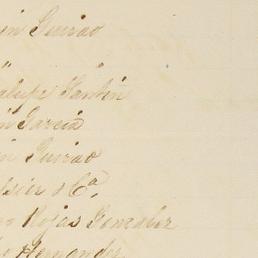 in Guirao
"
alupe Fantin
in Garcia
in Guirao
ssier & Cª.
Rojas Gonzalez
Hernandez